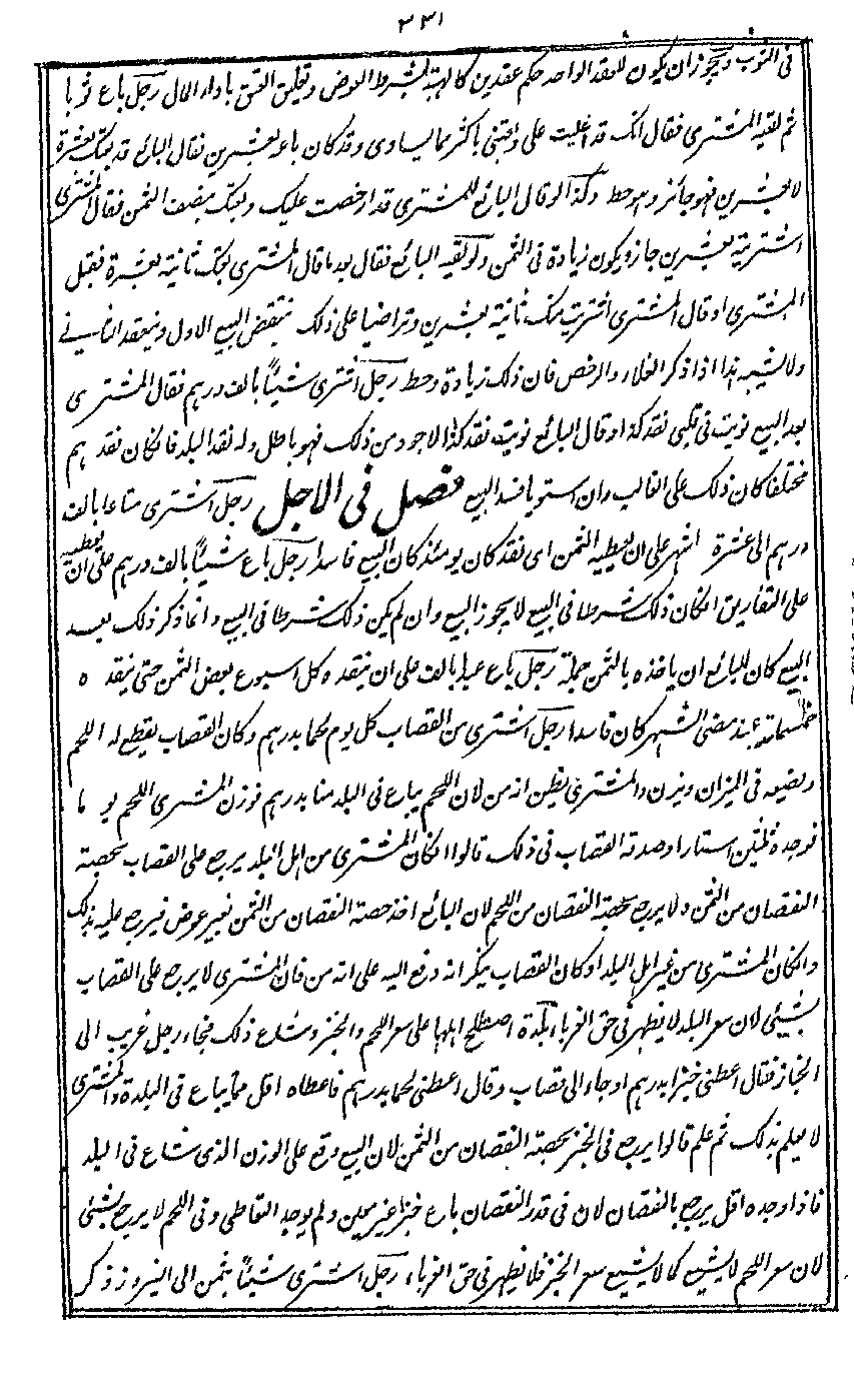 ٣٣١
فى الثوب ويجوز ان يكون للعقد الواحد حكم عقدين كالهبة بشرط العوض وتعليق العتق باداء المال رجل باع ثوبا
ثم لقيه المشترى فقال انك قد اغليت على وبعتنى باكثر مما يساوى وقد كان باعه بعشرين فقال البائع قد بعتك بعشرة
لا بعشرين فهو جائز وهو حط وكذا لو قال البائع للمشترى قد ارخصت عليك وبعتك بنصف الثمن فقال المشترى
اشتريته بعشرين جاز ويكون زيادة فى الثمن ولو لقيه البائع فقال بعد ما قال المشترى بعتك ثانية بعشرة فقبل
المشترى او قال المشترى اشتريت منك ثانية بعشرين وتراضيا على ذلك ينتقض البيع الاول وينعقد الثانى
ولا يشبه هذا اذا ذكر الغلاء والرخص فان ذلك زيادة وحط رجل اشترى شيئاً بالف درهم فقال المشترى
بعد البيع نويت فى قلبى نقد كذا وقال البائع نويت نقد كذا الاجود من ذلك فهو باطل وله نقد البلد فان كان نقدهم
مختلفا كان ذلك على الغالب وان استويا فسد البيع فصل فى الاجل رجل اشترى متاعا بالف
درهم الى عشرة اشهر على ان يعطيه الثمن اى نقد كان يومئذ كان البيع فاسدا رجل باع شيئاً بالف درهم على ان يعطيه
على التفاريق ان كان ذلك شرطا فى البيع لا يجوز البيع وان لم يكن ذلك شرطا فى البيع وانما ذكر ذلك بعد
البيع كان للبائع ان ياخذه بالثمن جملة رجل باع عبدا بالف على ان ينقده كل اسبوع بعض الثمن حتى ينقده
خمسمائة عند مضى الشهر كان فاسدا رجل اشترى من القصاب كل يوم لحما بدرهم وكان القصاب يقطع له اللحم
ويضعه فى الميزان ويزن والمشترى يظن انه من لان اللحم يباع فى البلد منا بدرهم فوزن المشترى اللحم يوما
فوجده ثلثين استارا وصدقه القصاب فى ذلك قالوا ان كان المشترى من اهل البلد يرجع على القصاب بحصته
النقصان من الثمن ولا يرجع بحصة النقصان من اللحم لان البائع اخذ حصة النقصان من الثمن بغير عوض فيرجع عليه بذلك
وان كان المشترى من غير اهل البلد او كان القصاب ينكر انه دفع اليه على انه من فان المشترى لا يرجع على القصاب
بشيئ لان سعر البلد لا يظهر فى حق الغرباء بلدة اصطلح اهلها على سعر اللحم والخبز وشاع ذلك فجاء رجل غريب الى
الخباز فقال اعطنى خبزا بدرهم او جاء الى قصاب وقال اعطنى لحما بدرهم فاعطاه اقل مما يباع فى البلدة والمشترى
لا يعلم بذلك ثم علم قالوا يرجع فى الخبز بحصة النقصان من الثمن لان البيع وقع على الوزن الذى شاع فى البلد
فاذا وجده اقل يرجع بالنقصان لان فى قدر النقصان باع خبزا غير معين ولم يوجد التعاطى وفى اللحم لا يرجع بشيئ
لان سعر اللحم لا يشيع كما لا يشيع سعر الخبز فلا يظهر فى حق الغرباء رجل اشترى شيئاً بثمن الى النيروز ذكر